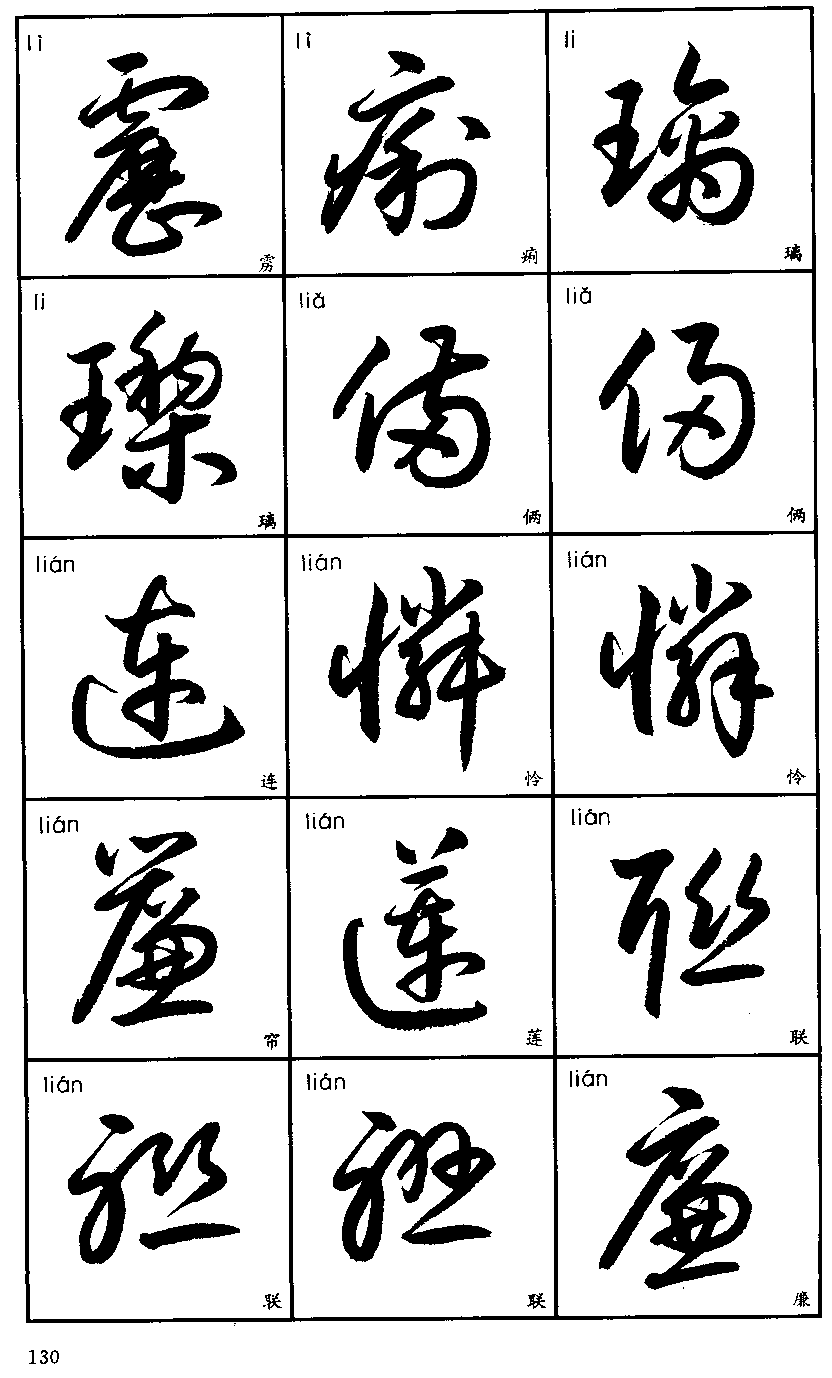 lì lì li
靂 痢 璃
雳 痢 璃
li liǎ liǎ
瓈 倆 倆
璃 俩 俩
lián lián lián
連 憐 憐
连 怜 怜
lián lián lián
簾 蓮 聯
帘 莲 联
lián lián lián
聯 聯 廉
联 联 廉
130